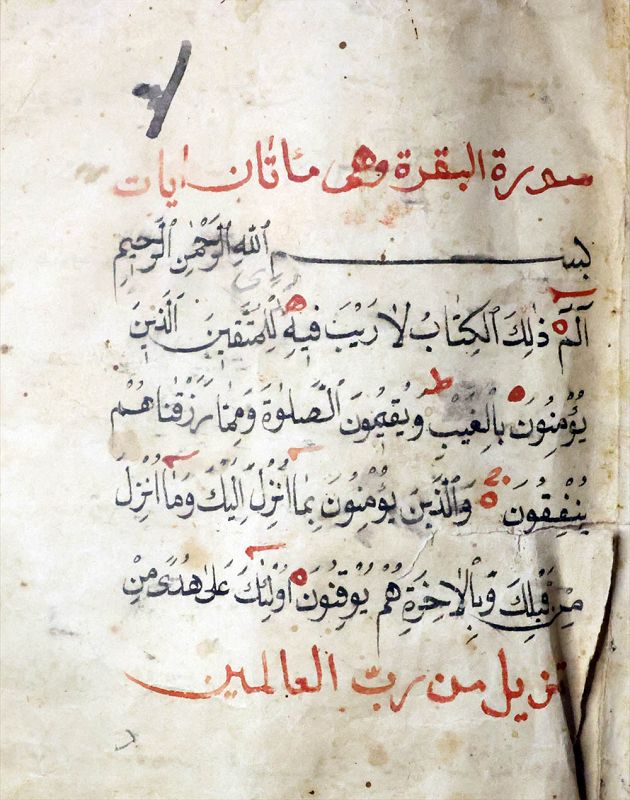 سورة البقرة وهى مائتان ايات
بسم اللهِ الرَّحْمٰنِ الرَّحِيمِ
الٓمٓ ذٰلِكَ الْكِتَابُ لَا رَيْبَ فِيهِ لِلْمُتَّقِينَ الَّذِينَ
يُؤْمِنُونَ بِالْغَيْبِ وَيُقِيمُونَ الصَّلٰوةَ وَمِمَّا رَزَقْنَاهُمْ
يُنْفِقُونَ وَالَّذِينَ يُؤْمِنُونَ بِمَا اُنْزِلَ اِلَيْكَ وَمَا اُنْزِلَ
مِنْ قَبْلِكَ وَبِالْاٰخِرَةِ هُمْ يُوقِنُونَ اُولٰئِكَ عَلٰى هُدًى مِنْ
تنزيل من ربّ العالمين